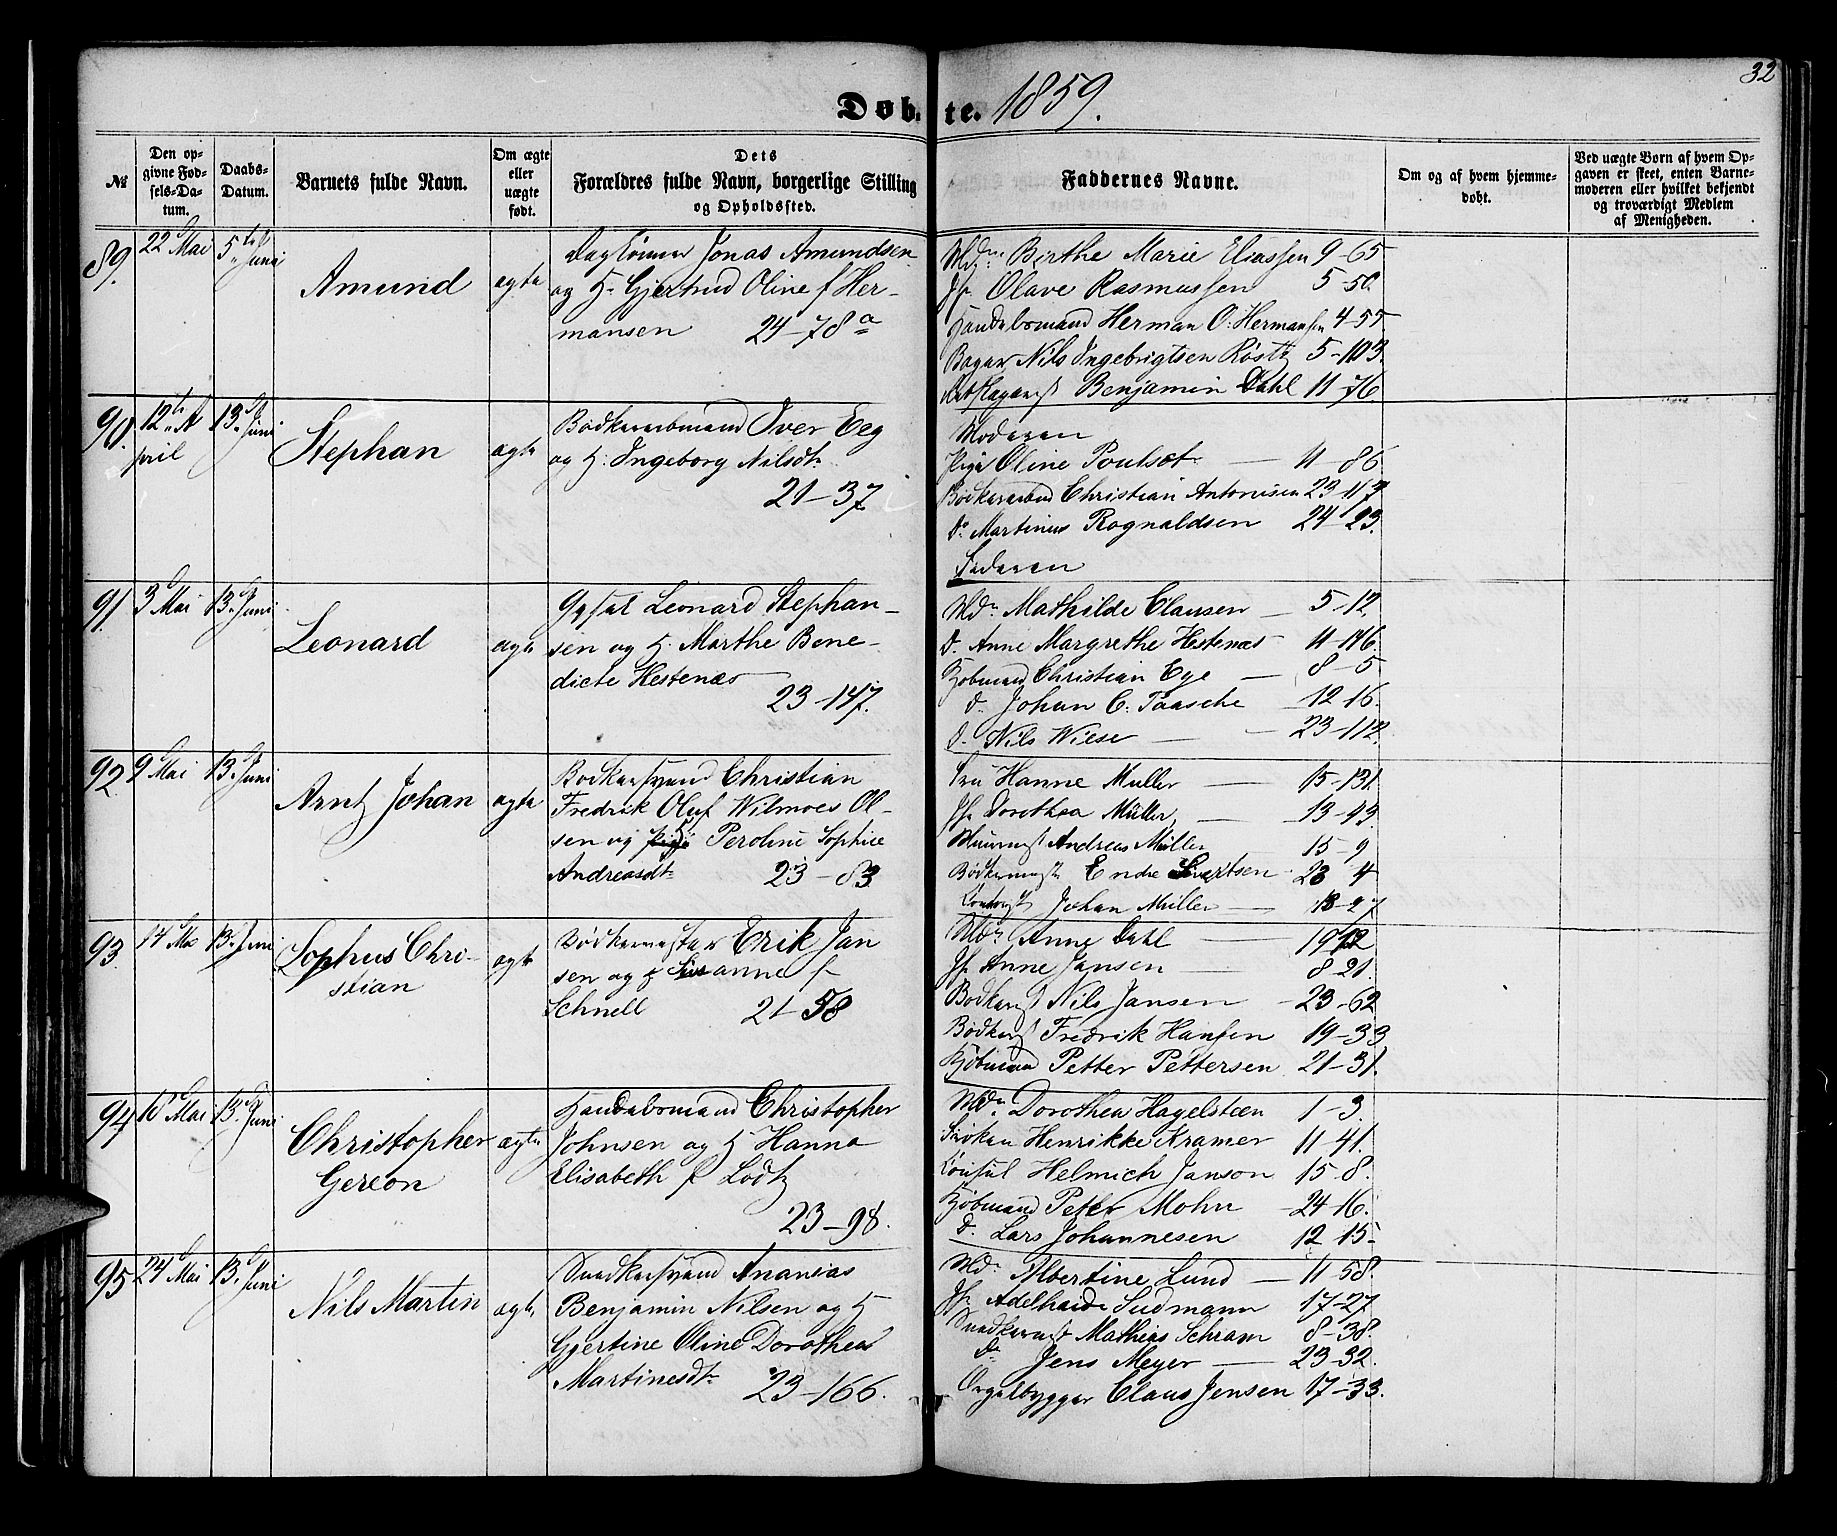 32
Døbte. 1859.
№
Den opgivne Fødsels-Datum.
Daabs-Datum.
Barnets fulde Navn.
Om ægte eller uægte født.
Dets Forældres fulde Navn, borgerlige Stilling og Opholdssted.
Faddernes Navne.
Om og af hvem hjemmedøbt.
Ved uægte Børn af hvem Opgaven er skeet, enten Barnemoderen eller hvilket bekjendt og troværdigt Medlem af Menigheden.
89. 22 Mai 5te Juni
Amund
ægte
Daglønner Jonas Amundsen
og H. Gjertrud Oline f Her-
mansen 24-78a
Md. Birthe Marie Eliassen 9-65
Jf. Olave Rasmussen 5-50.
Handelsmand Herman O. Hermansen 4-55
Bager Nils Ingebrigtsen Röst 5-103
Benjamin Dahl 11-76
90. 12te A
pril
13 Juni
Stephan
ægte
Bødkersvend Iver Eeg
og H. Ingeborg Nilsdtr
21-37
Moderen
Pige Oline Poulsdt. 11-86
Christian Antonisen 23-117
Do Martinus Rognaldsen 24-123.
Faderen
91. 3 Mai 13. Juni
Leonard
ægte
Leonard Stephan-
sen og H. Marthe Bene-
dicte Hestenæs
23-147.
Md. Mathilde Clausen 5-12
D. Anne Margrethe Hestenæs 11-146.
Kjøbmand Christian Ege 8-5
d. Johan C. Paasche 12-16.
d. Nils Wiese 23-112.
92 9 Mai 13. Juni
Arnt Johan
ægte
Bødkersvend Christian
Fredrik Oluf Wilmoes Ol-
sen og Pige Peroline Sophie
Andreasdtr 23-83
Fru Hanne Muller 15-131.
Jf. Dorothea Müller 13-43.
Muurmst Andreas Müller 15-9
Bødkermstr Endre Sivertsen 23-4
Johan Müller 18-27
93. 14 Mai 13. Juni
Sophus Chri-
stian
ægte
Bødkermester Erik Jan
sen og H Susanne f
Schnell 21-58
Md. Anne Dahl
Jf. Anne Jansen 8-21.
Bødkermst Nils Jansen 23-62
Bødkermst Fredrik Hansen 19-33
Kjøbmand Petter Pettersen 21-31.
94 10 Mai 13. Juni
Christopher
Gereon
ægte
Handelsmand Christopher
Johnsen og H Hanna
Elisabeth f Lodtz
23-98.
Md. Dorothea Hagelsteen 1-3.
Frøken Henrikke Kramer 11-41.
Consul Helmich Janson 15-8.
Kjøbmand Peter Mohn 24-16.
d. Lars Johannesen 12-15
95 24 Mai 13. Juni
Nils Martin
ægte
Snedkersvend Ananias
Benjamin Nilsen og H
Gjertine Oline Dorothea
Martinesdtr 23-166.
Md. Albertine Lund 11-58.
Jf. Adelhaide Sudmann 17-27
Snedkermst Mathias Schram 8-38.
do Jens Meyer 23-32.
Orgelbygger Claus Jensen 17-33.